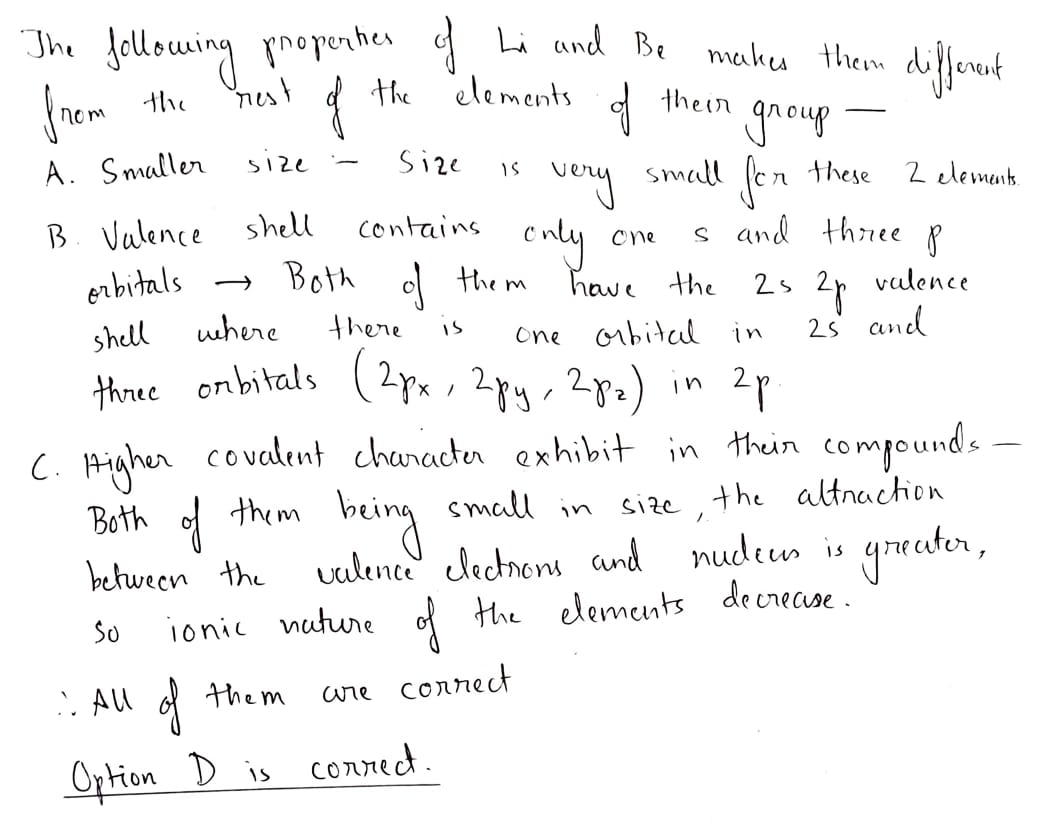 The following properties of Li and Be makes them different
from the rest of the elements of their group —
A. Smaller size :- Size is very small for these 2 elements.
B. Valence shell contains only one s and three p
orbitals → Both of them have the 2s 2p valence
shell where there is one orbital in 2s and
three orbitals (2px, 2py, 2pz) in 2p.
C. Higher covalent character exhibit in their compounds —
Both of them being small in size, the attraction
between the valence electrons and nucleus is greater,
so ionic nature of the elements decrease.
∴ All of them are correct
Option D is correct.